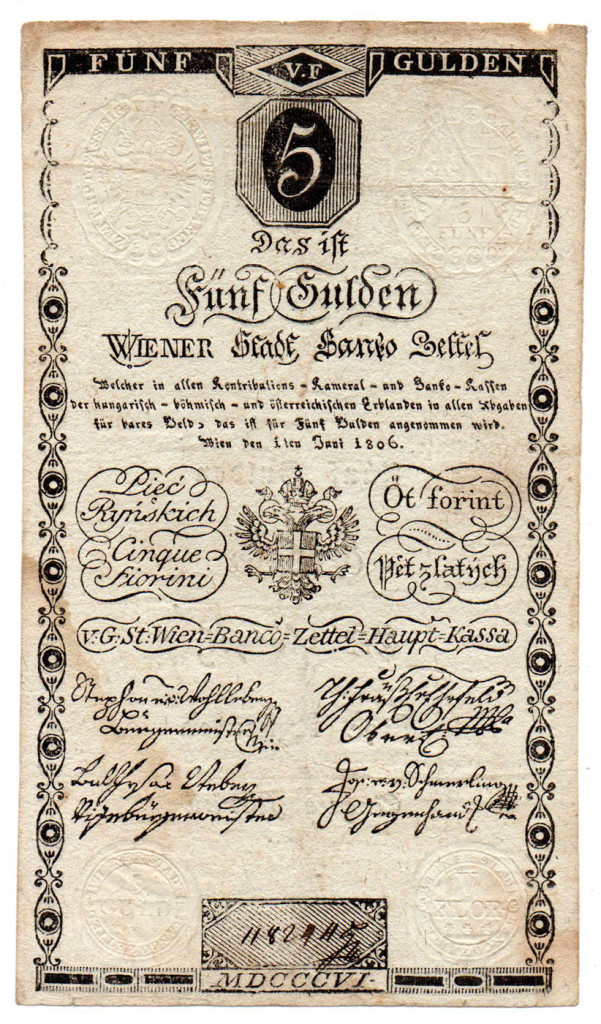 FÜNF
V.F
GULDEN
5
Das ist
Fünf Gulden
WIENER Stadt Banko Zettel
Welcher in allen Kontributions - Kameral - und Banko - Kassen
der hungarisch - böhmisch - und österreichischen Erblanden in allen Abgaben
für bares Geld, das ist für Fünf Gulden angenommen wird.
Wien den 1ten Juni 1806.
Pieć
Ryńskich
Cinque
Fiorini
Öt forint
Pět zlatých
v. G. St. Wien = Banco = Zettel = Haupt = Kassa
Stephan v. Wohlleben
Burgermeister
Obere
Jos: v. Schmerling
Gegenhand
MDCCCVI